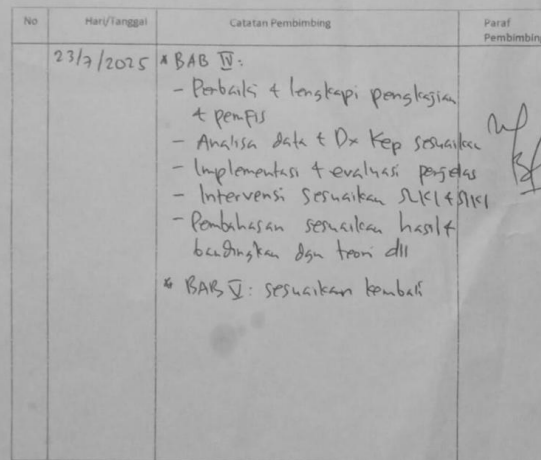 No Hari/Tanggal Catatan Pembimbing Paraf
Pembimbing
23/7/2025 * BAB IV:
- Perbaiki & lengkapi pengkajian
& pemfis
- Analisa data & Dx Kep sesuaikan
- Implementasi & evaluasi perjelas
- Intervensi sesuaikan SLKI & SIKI
- Pembahasan sesuaikan hasil &
bandingkan dgn teori dll
* BAB V: sesuaikan kembali